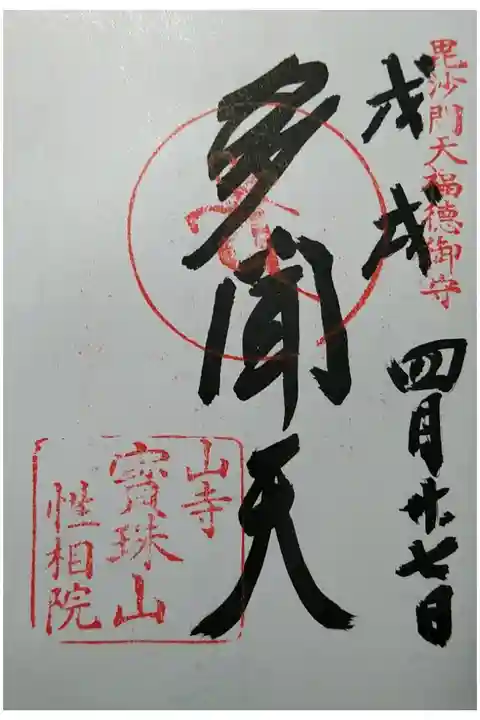 毘沙門天福徳御守
戊戌 四月廿七日
多聞天
山寺
寳珠山
性相院